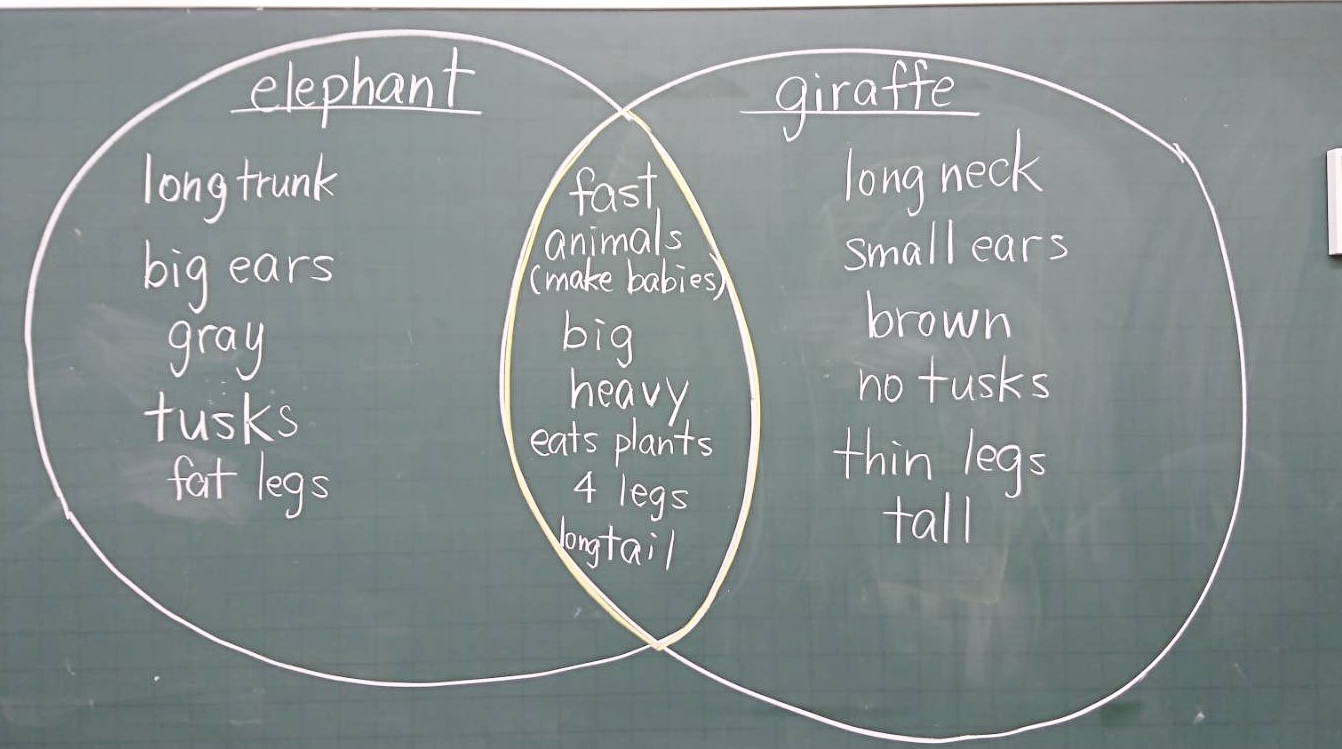 elephant
long trunk
big ears
gray
tusks
fat legs
fast
animals
(make babies)
big
heavy
eats plants
4 legs
long tail
giraffe
long neck
small ears
brown
no tusks
thin legs
tall